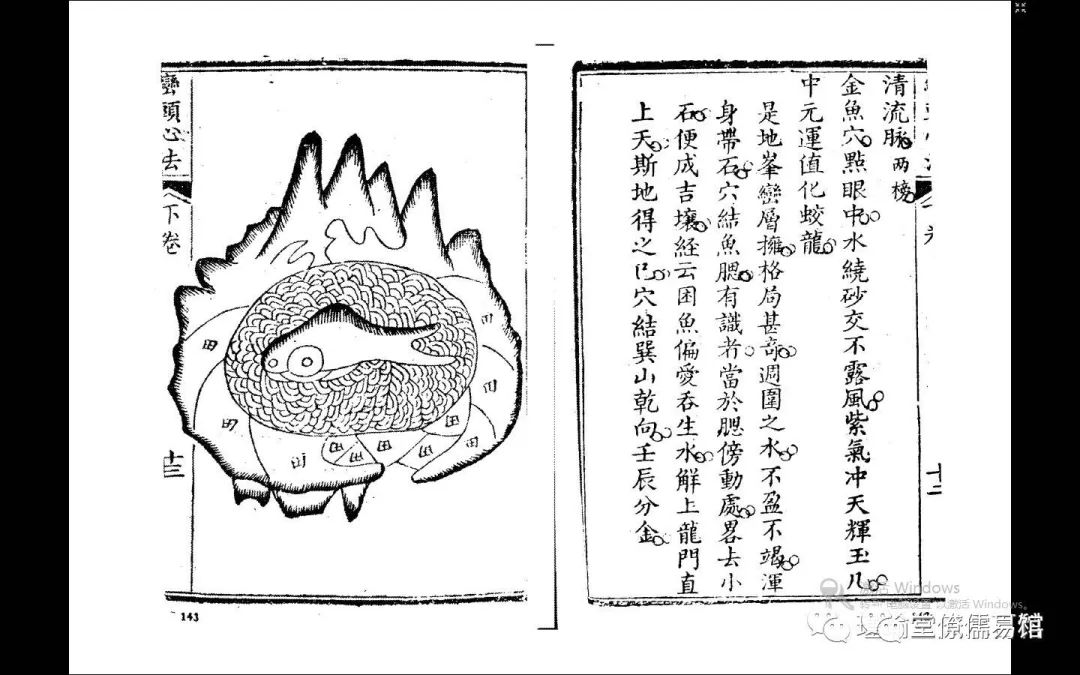 清流脉兩榜
金魚穴點眼中水繞砂交不露風紫氣冲天輝玉几
中元運值化蛟龍
是地峯巒層擁格局甚奇週圍之水不盈不竭渾
身帶石穴結魚腮有識者當於腮傍動處畧去小
石便成吉壤経云困魚偏愛吞生水解上龍門直
上天斯地得之巳穴結巽山乾向壬辰分金
十二
巒頭心去
下卷
十三
田
田
田
田
田
田
田
田
143
激活 Windows
以激活 Windows。
堂僚儒易馆